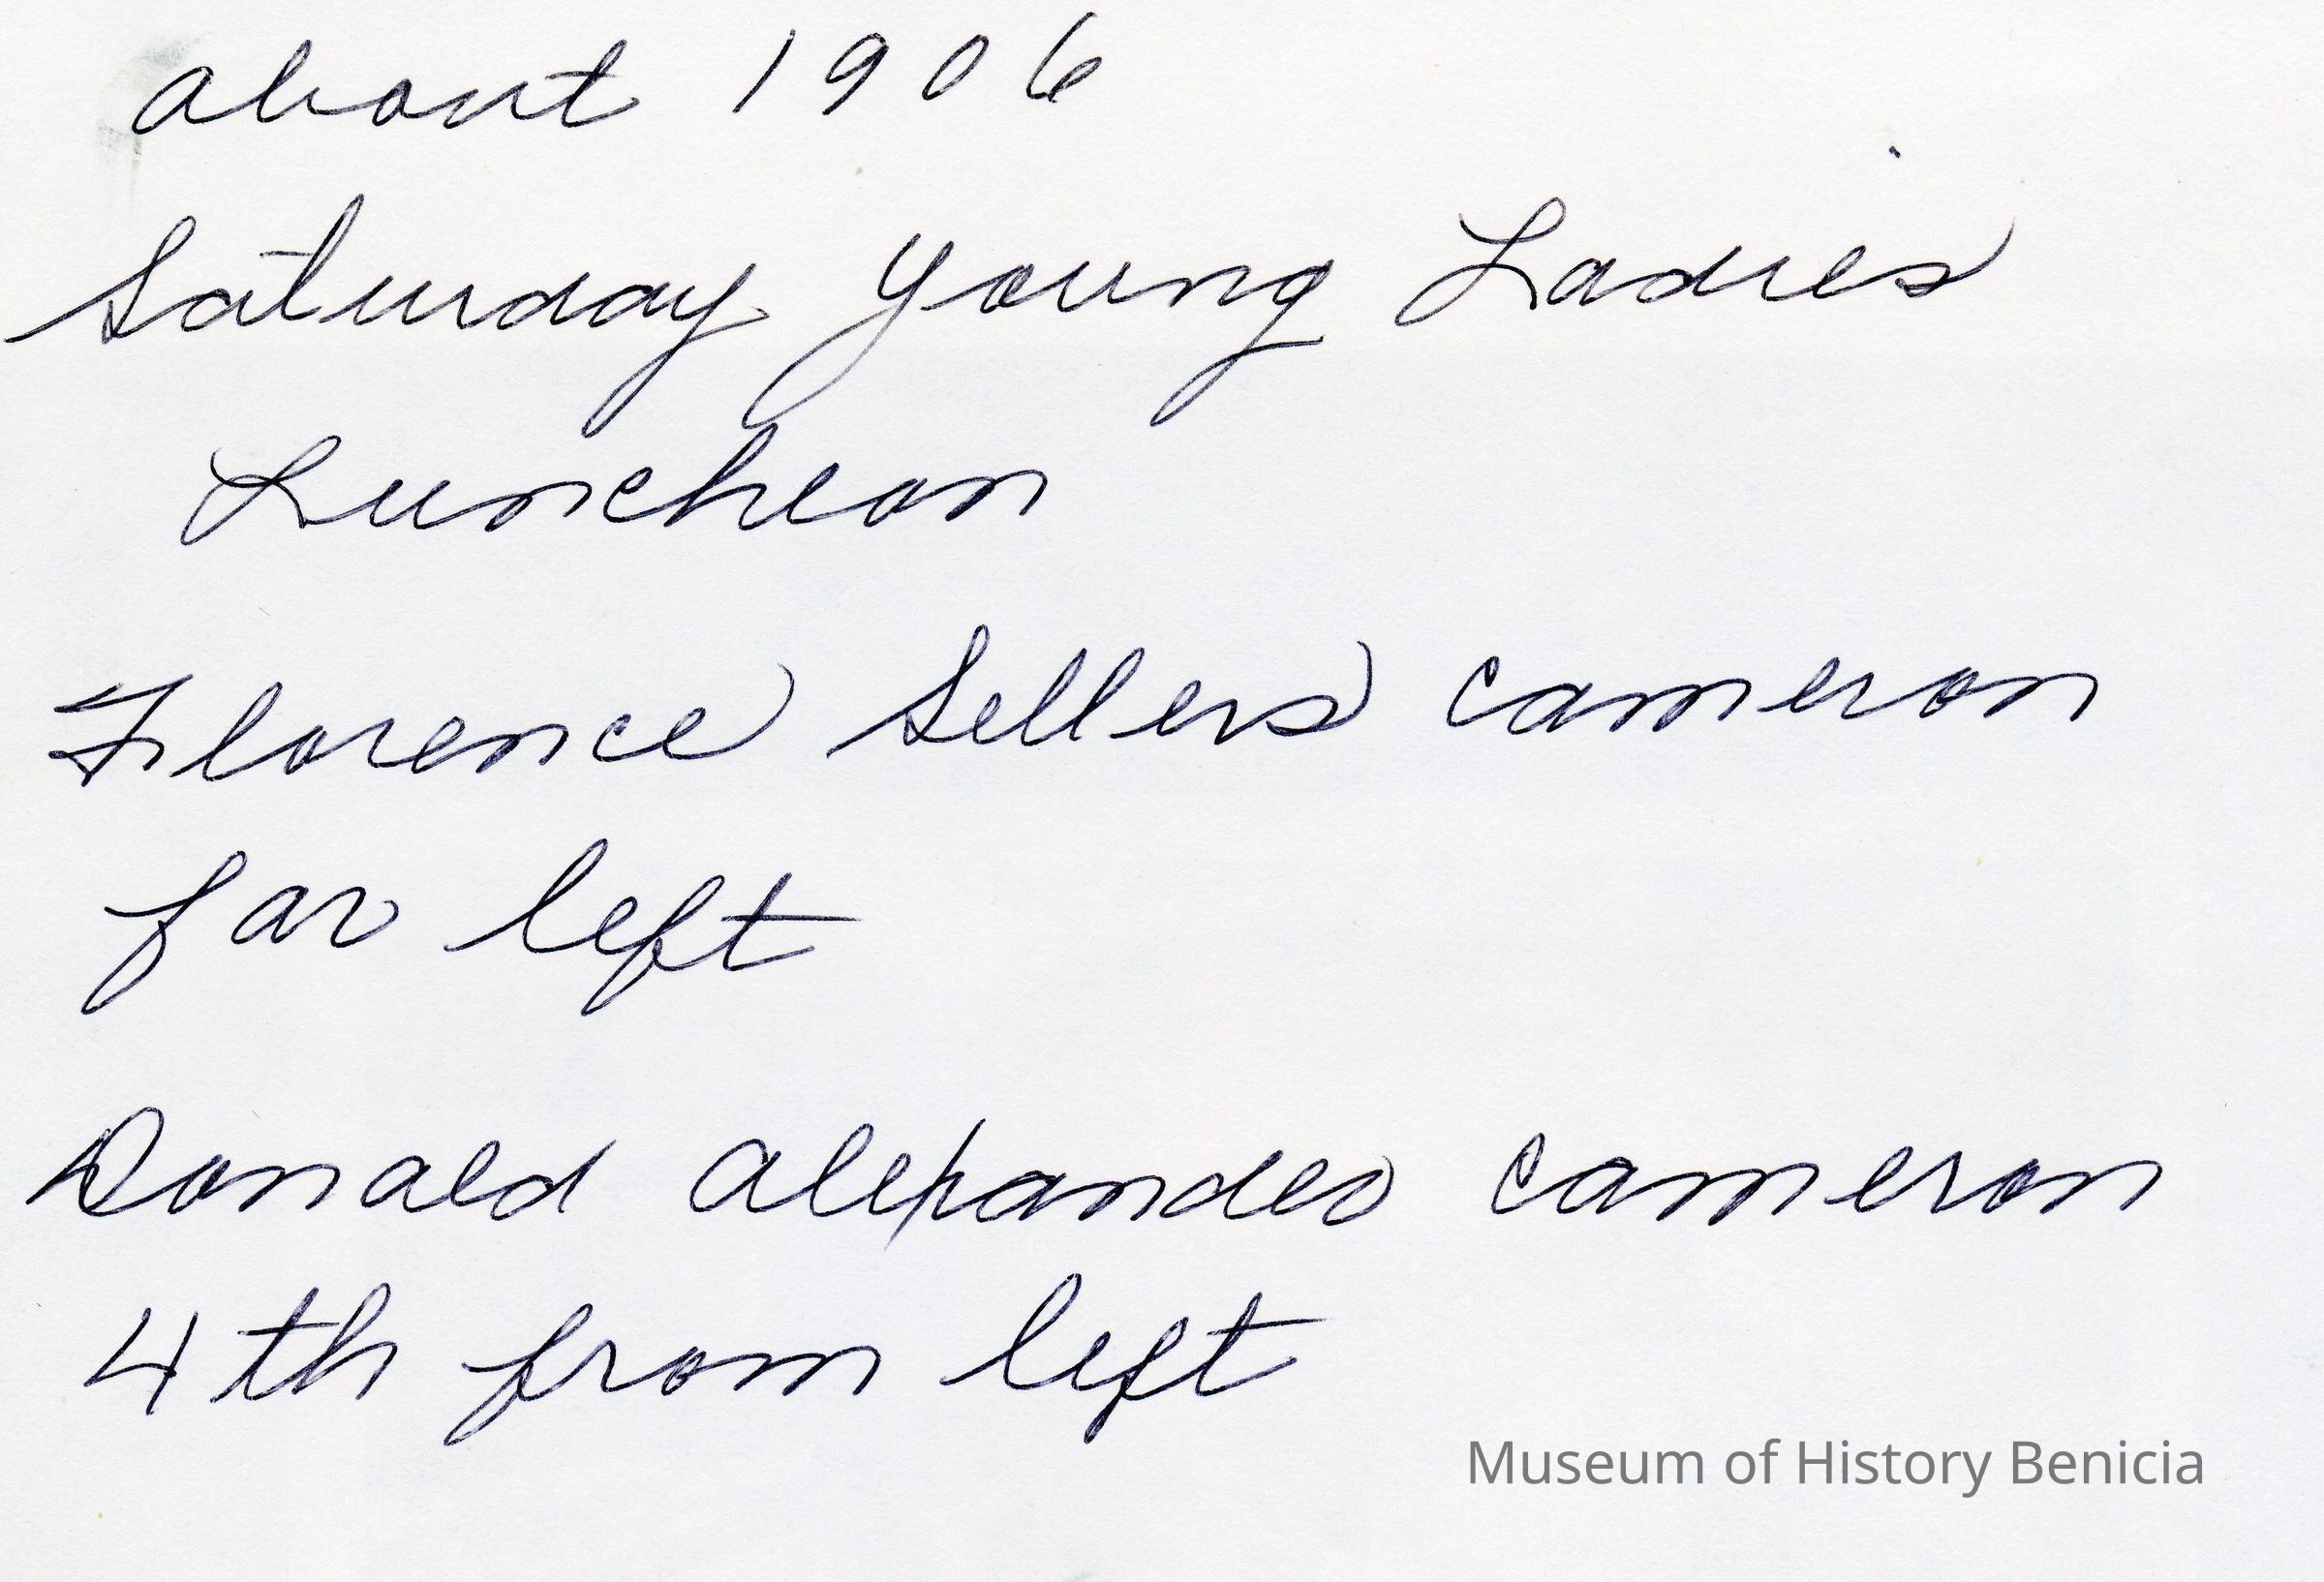 about 1906
Saturday Young Ladies
Luncheon
Florence Sellers Cameron
far left
Donald Alexander Cameron
4th from left
Museum of History Benicia